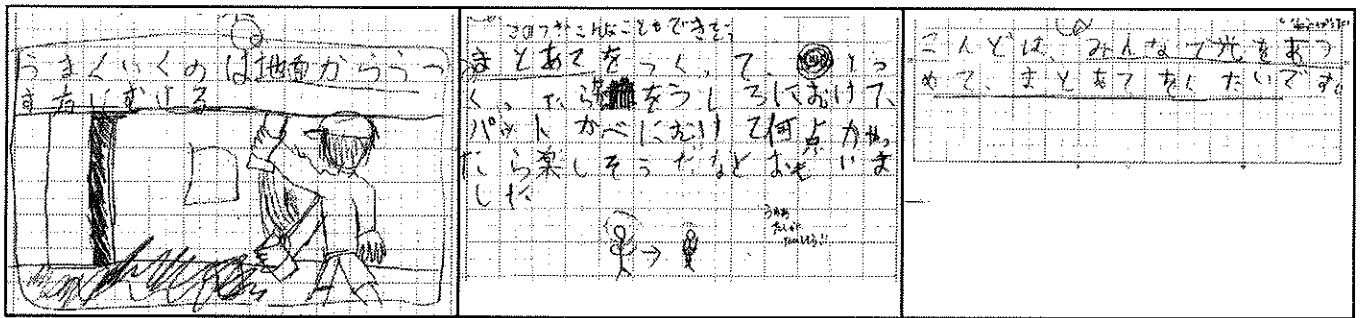 うまくいくのは地面からうつ
す方にむける
このつぎこんなこともできそう
まとあてをつくって、
くったらをうしろにむけて、
パッとかべにむけて何点かやっ
たら楽しそうだなとおもいま
した
こんどは、みんなで光をあつ
めて、まとあてをしたいです。